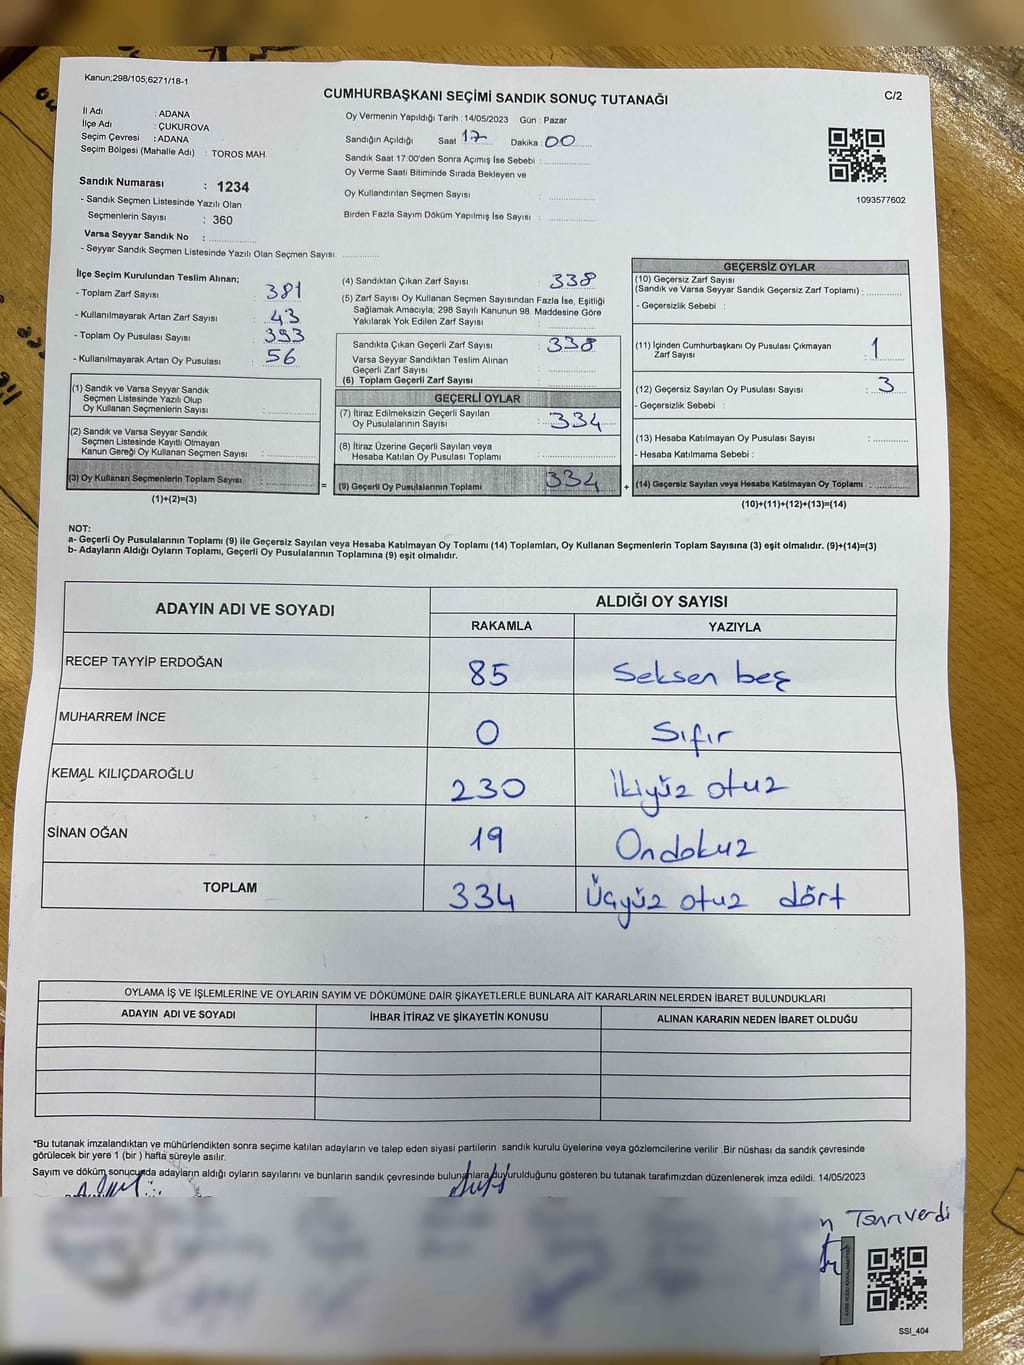 Kanun;298/105;6271/18-1
CUMHURBAŞKANI SEÇİMİ SANDIK SONUÇ TUTANAĞI
C/2
İl Adı : ADANA
İlçe Adı : ÇUKUROVA
Seçim Çevresi : ADANA
Seçim Bölgesi (Mahalle Adı) : TOROS MAH.
Sandık Numarası : 1234
- Sandık Seçmen Listesinde Yazılı Olan
Seçmenlerin Sayısı : 360
Varsa Seyyar Sandık No :
- Seyyar Sandık Seçmen Listesinde Yazılı Olan Seçmen Sayısı:
Oy Vermenin Yapıldığı Tarih : 14/05/2023 Gün : Pazar
Sandığın Açıldığı Saat 17 Dakika : 00
Sandık Saat 17:00'den Sonra Açımış İse Sebebi :
Oy Verme Saati Bitiminde Sırada Bekleyen ve
Oy Kullandırılan Seçmen Sayısı :
Birden Fazla Sayım Döküm Yapılmış İse Sayısı :
1093577602
İlçe Seçim Kurulundan Teslim Alınan;
- Toplam Zarf Sayısı : 381
- Kullanılmayarak Artan Zarf Sayısı : 43
- Toplam Oy Pusulası Sayısı : 393
- Kullanılmayarak Artan Oy Pusulası : 56
(1) Sandık ve Varsa Seyyar Sandık
Seçmen Listesinde Yazılı Olup
Oy Kullanan Seçmenlerin Sayısı :
(2) Sandık ve Varsa Seyyar Sandık
Seçmen Listesinde Kayıtlı Olmayan
Kanun Gereği Oy Kullanan Seçmen Sayısı :
(3) Oy Kullanan Seçmenlerin Toplam Sayısı :
(1)+(2)=(3)
=
(4) Sandıktan Çıkan Zarf Sayısı : 338
(5) Zarf Sayısı Oy Kullanan Seçmen Sayısından Fazla İse, Eşitliği
Sağlamak Amacıyla; 298 Sayılı Kanunun 98. Maddesine Göre
Yakılarak Yok Edilen Zarf Sayısı :
Sandıkta Çıkan Geçerli Zarf Sayısı : 338
Varsa Seyyar Sandıktan Teslim Alınan
Geçerli Zarf Sayısı :
(6) Toplam Geçerli Zarf Sayısı :
GEÇERLİ OYLAR
(7) İtiraz Edilmeksizin Geçerli Sayılan
Oy Pusulalarının Sayısı : 334
(8) İtiraz Üzerine Geçerli Sayılan veya
Hesaba Katılan Oy Pusulası Toplamı :
(9) Geçerli Oy Pusulalarının Toplamı : 334
+
GEÇERSİZ OYLAR
(10) Geçersiz Zarf Sayısı
(Sandık ve Varsa Seyyar Sandık Geçersiz Zarf Toplamı) :
- Geçersizlik Sebebi :
(11) İçinden Cumhurbaşkanı Oy Pusulası Çıkmayan
Zarf Sayısı : 1
(12) Geçersiz Sayılan Oy Pusulası Sayısı : 3
- Geçersizlik Sebebi :
(13) Hesaba Katılmayan Oy Pusulası Sayısı :
- Hesaba Katılmama Sebebi :
(14) Geçersiz Sayılan veya Hesaba Katılmayan Oy Toplamı :
(10)+(11)+(12)+(13)=(14)
NOT:
a- Geçerli Oy Pusulalarının Toplamı (9) ile Geçersiz Sayılan veya Hesaba Katılmayan Oy Toplamı (14) Toplamları, Oy Kullanan Seçmenlerin Toplam Sayısına (3) eşit olmalıdır. (9)+(14)=(3)
b- Adayların Aldığı Oyların Toplamı, Geçerli Oy Pusulalarının Toplamına (9) eşit olmalıdır.
ADAYIN ADI VE SOYADI
ALDIĞI OY SAYISI
RAKAMLA YAZIYLA
RECEP TAYYİP ERDOĞAN 85 Seksen beş
MUHARREM İNCE 0 Sıfır
KEMAL KILIÇDAROĞLU 230 İkiyüz otuz
SİNAN OĞAN 19 Ondokuz
TOPLAM 334 Üçyüz otuz dört
OYLAMA İŞ VE İŞLEMLERİNE VE OYLARIN SAYIM VE DÖKÜMÜNE DAİR ŞİKAYETLERLE BUNLARA AİT KARARLARIN NELERDEN İBARET BULUNDUKLARI
ADAYIN ADI VE SOYADI İHBAR İTİRAZ VE ŞİKAYETİN KONUSU ALINAN KARARIN NEDEN İBARET OLDUĞU
*Bu tutanak imzalandıktan ve mühürlendikten sonra seçime katılan adayların ve talep eden siyasi partilerin sandık kurulu üyelerine veya gözlemcilerine verilir .Bir nüshası da sandık çevresinde
görülecek bir yere 1 (bir ) hafta süreyle asılır.
Sayım ve döküm sonucunda adayların aldığı oyların sayılarını ve bunların sandık çevresinde bulunanlara duyurulduğunu gösteren bu tutanak tarafımızdan düzenlenerek imza edildi. 14/05/2023
n Tanrıverdi
SSI_404